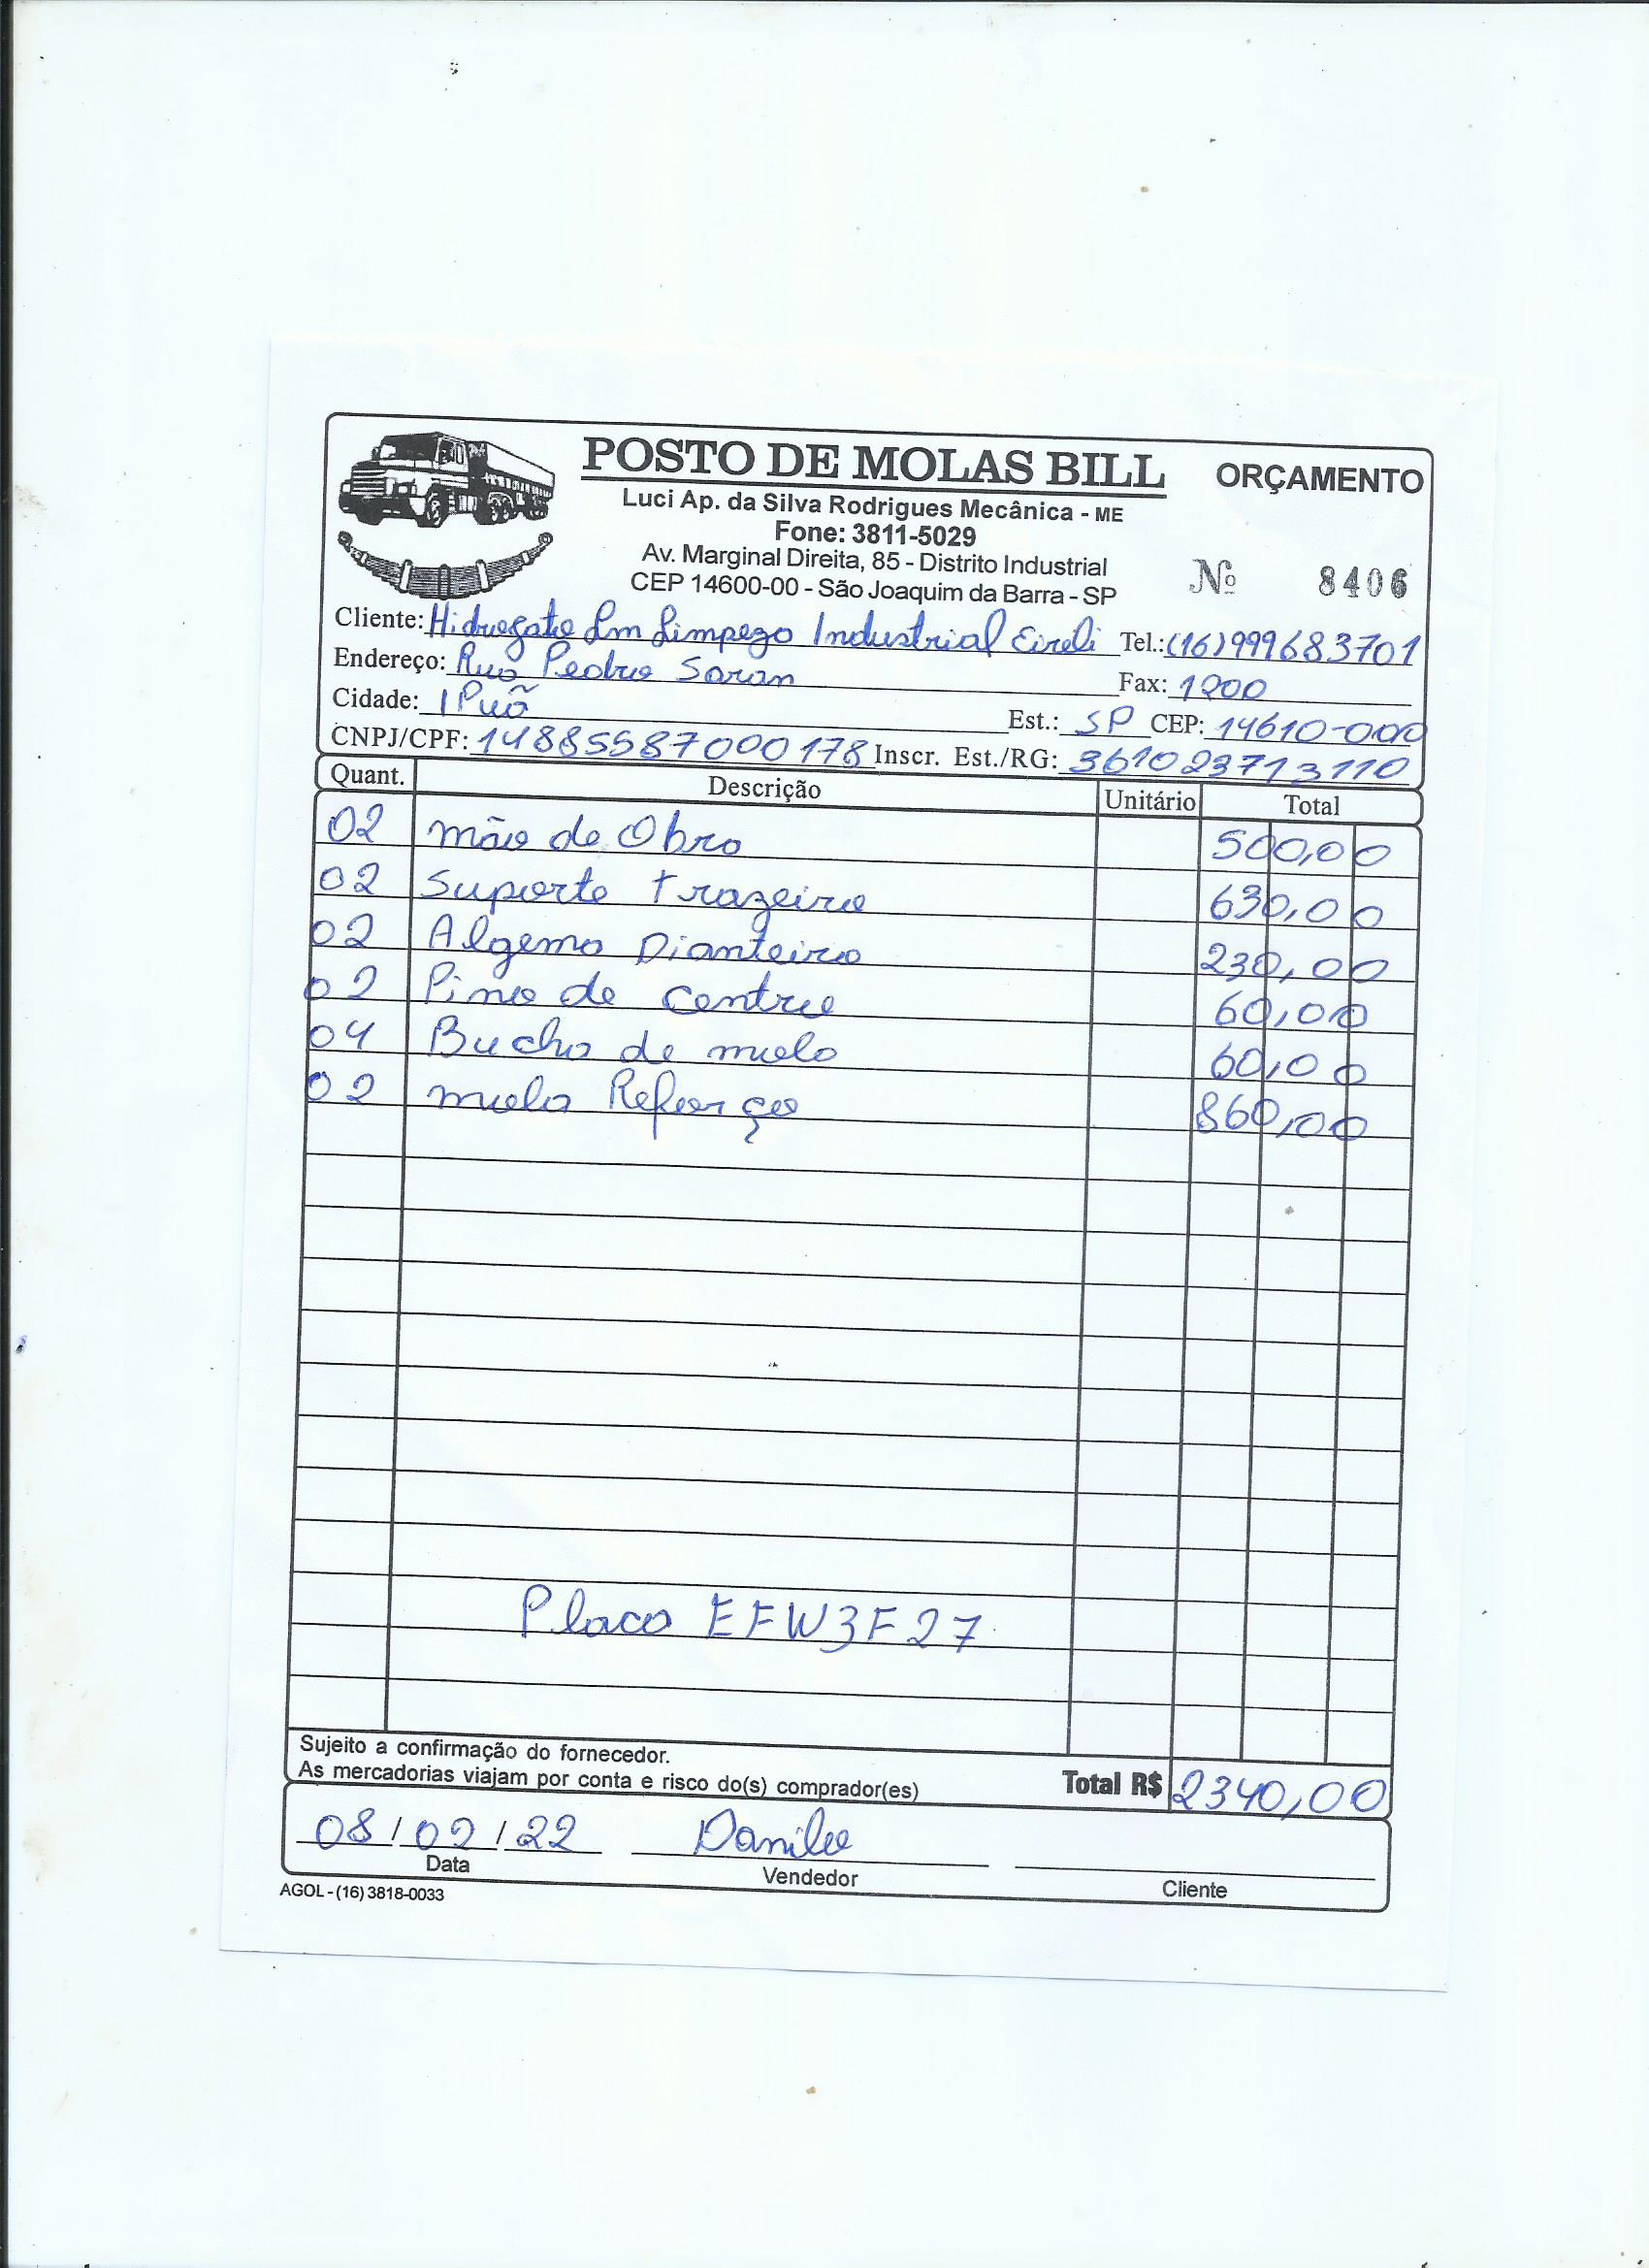 POSTO DE MOLAS BILL ORÇAMENTO
Luci Ap. da Silva Rodrigues Mecânica - ME
Fone: 3811-5029
Av. Marginal Direita, 85 - Distrito Industrial
CEP 14600-00 - São Joaquim da Barra - SP
Nº 8406
Cliente: Hidrogato Em Limpeza Industrial Eireli Tel.: (16) 999683701
Endereço: Rua Pedro Saran Fax: 1200
Cidade: IPuã Est.: SP CEP: 14610-000
CNPJ/CPF: 14885587000178 Inscr. Est./RG: 361023713110
Quant. Descrição Unitário Total
02 mão de Obra 500,00
02 Suporte Trazeiro 630,00
02 Algema Dianteiro 230,00
02 Pino de centro 60,00
04 Bucha de mola 60,00
02 mola Reforço 860,00
Placa EFW3F27
Sujeito a confirmação do fornecedor.
As mercadorias viajam por conta e risco do(s) comprador(es)
Total R$ 2340,00
08/02/22 Danilo
Data Vendedor Cliente
AGOL - (16) 3818-0033